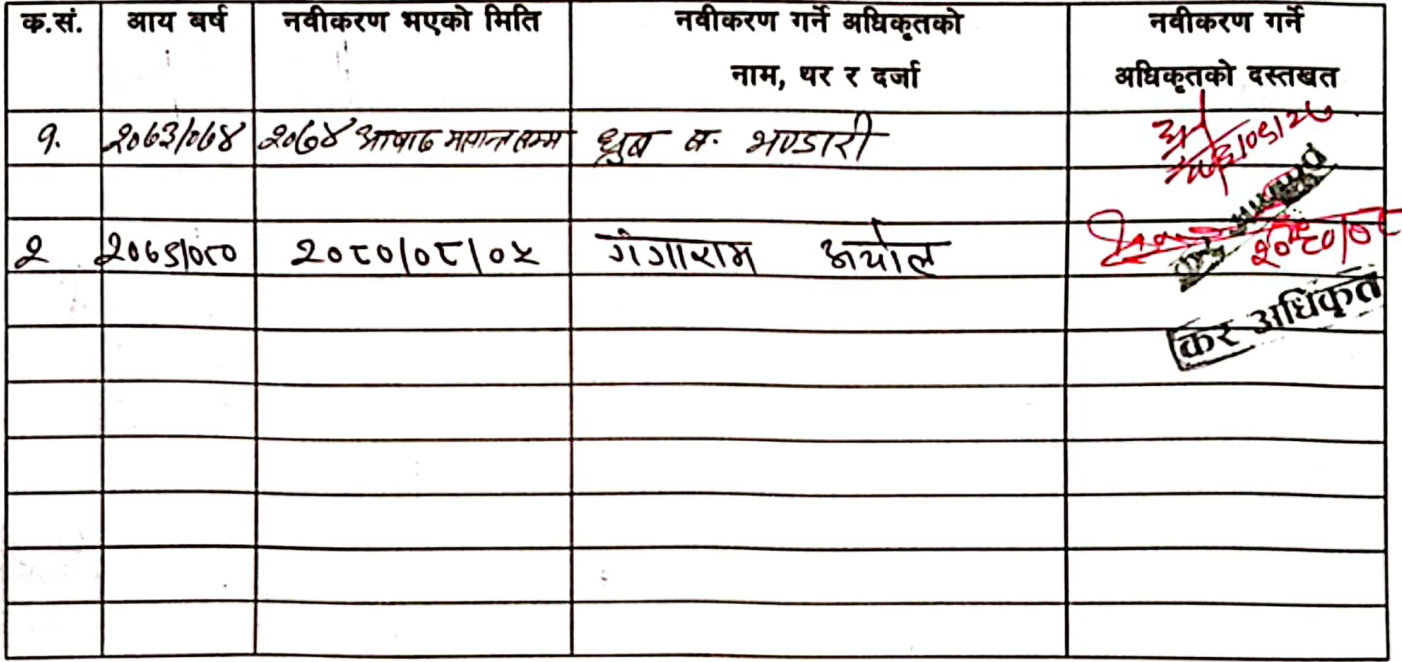 क.सं. आय बर्ष नवीकरण भएको मिति नवीकरण गर्ने अधिकृतको नाम, थर र दर्जा नवीकरण गर्ने अधिकृतको दस्तखत
१. २०७३/०७४ २०७४ आषाढ मसान्त सम्म ध्रुब ब. भण्डारी
२ २०७९/०८० २०८०/०८/०५ गंगाराम अर्याल २०८०/०८
कर अधिकृत